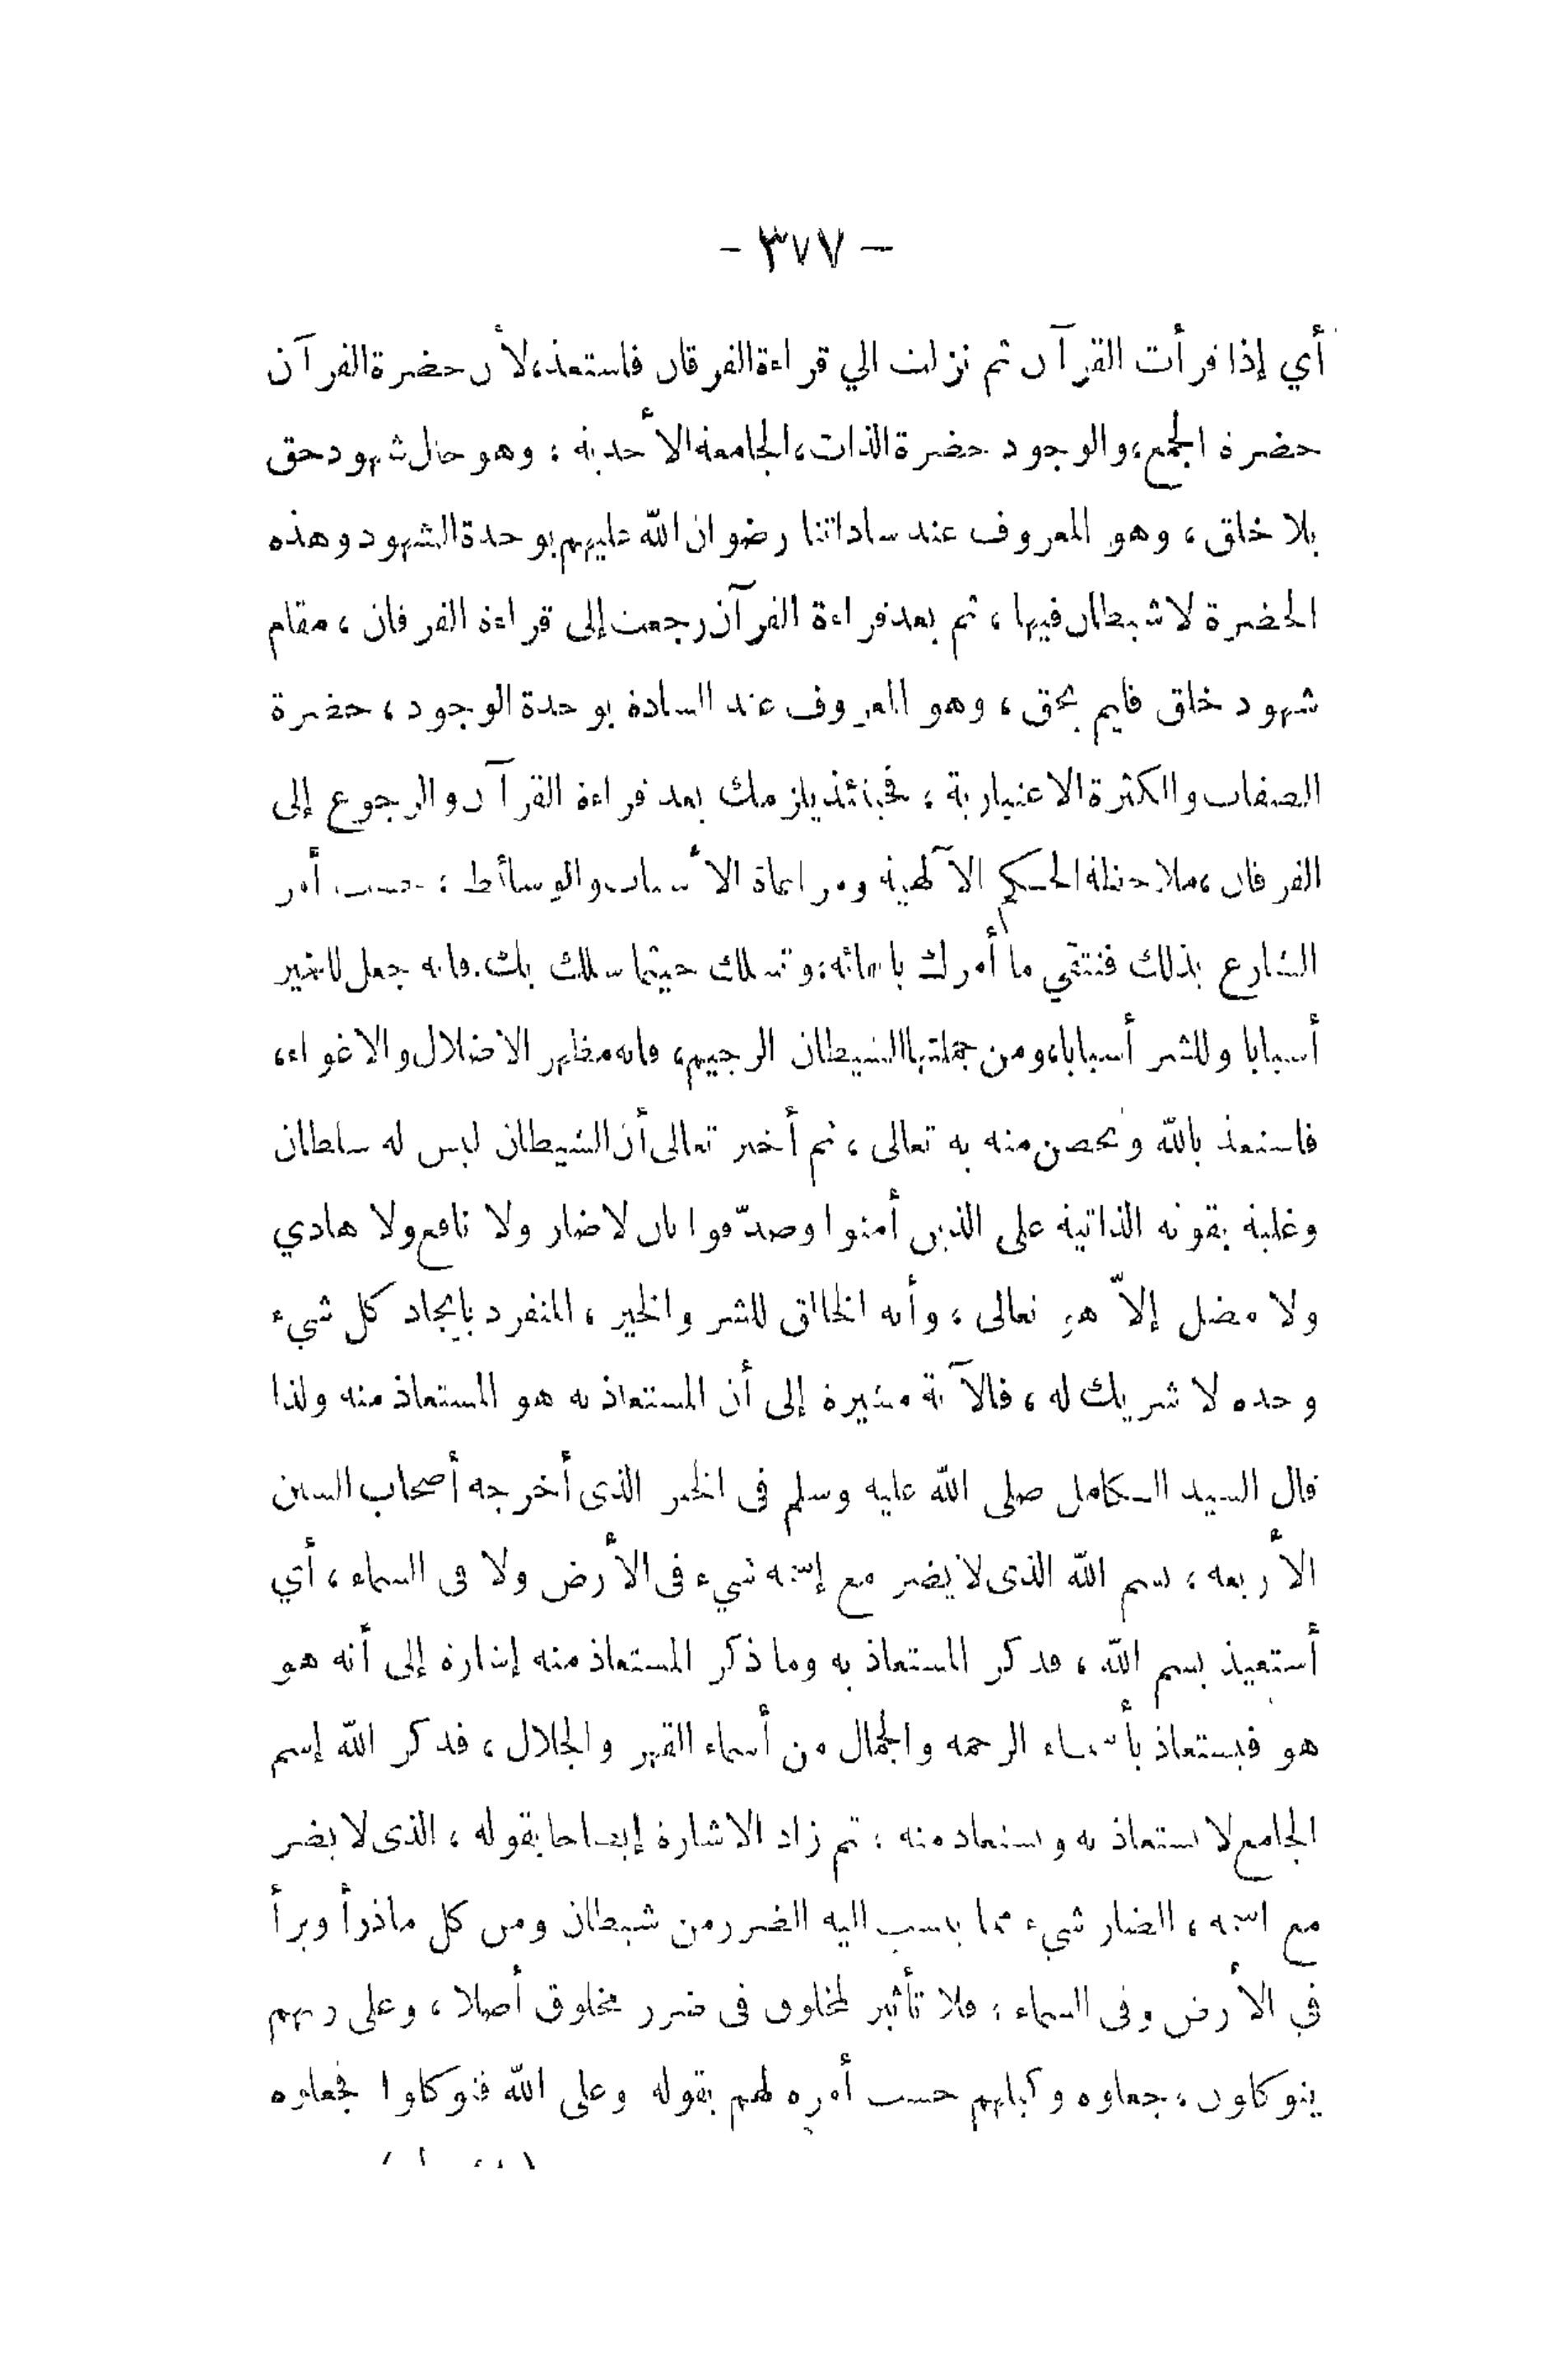 — ٣٧٧ —
أي إذا قرأت القرآن ثم نزلت الي قراءة الفرقان فاستعذ، لأن حضرة القرآن
حضرة الجمع، والوجود حضرة الذات، الجامعة الأحدية، وهو حال شهود حق
بلا خلق، وهو المعروف عند ساداتنا رضوان الله عليهم بوحدة الشهود وهذه
الحضرة لا شيطان فيها، ثم بعد قراءة القرآن رجعت إلى قراءة الفرقان، مقام
شهود خلق قايم بحق، وهو المعروف عند السادة بوحدة الوجود، حضرة
الصفات والكثرة الاعتبارية، فحينئذ يلزمك بعد قراءة القرآن والرجوع إلى
الفرقان، ملاحظة الحكم الآلهية ومراعاة الأسباب والوسائط، حسب أمر
الشارع بذلك فتتقي ما أمرك باتقائه، وتسلك حيثما سلك بك. فانه جعل للخير
أسبابا وللشر أسبابا، ومن جملتها الشيطان الرجيم، فانه مظهر الاضلال والاغواء،
فاستعذ بالله وتحصن منه به تعالى، ثم أخبر تعالى أن الشيطان ليس له سلطان
وغلبة بقوته الذاتية على الذين أمنوا وصدّقوا بان لا ضار ولا نافع ولا هادي
ولا مضل إلاّ هو تعالى، وأنه الخالق للشر والخير، المنفرد بايجاد كل شيء
وحده لا شريك له، فالآية مشيرة إلى أن المستعاذ به هو المستعاذ منه ولذا
قال السيد الكامل صلى الله عليه وسلم فى الخبر الذى أخرجه أصحاب السنن
الأربعه، بسم الله الذى لا يضر مع إسمه شيء فى الأرض ولا فى السماء، أي
أستعيذ بسم الله، فذكر المستعاذ به وما ذكر المستعاذ منه إشارة إلى أنه هو
هو فيستعاذ بأسماء الرحمه والجمال من أسماء القهر والجلال، فذكر الله إسم
الجامع لا يستعاذ به ويستعاذ منه، ثم زاد الاشارة إيضاحا بقوله، الذى لا يضر
مع اسمه، الضار شيء مما ينسب اليه الضرر من شيطان ومن كل ماذرأ وبرأ
في الأرض وفى السماء، فلا تأثير لمخلوق فى ضرر مخلوق أصلا، وعلى ربهم
يتوكلون، جعلوه وكيلهم حسب أمره لهم بقوله وعلى الله فتوكلوا فجعلوه